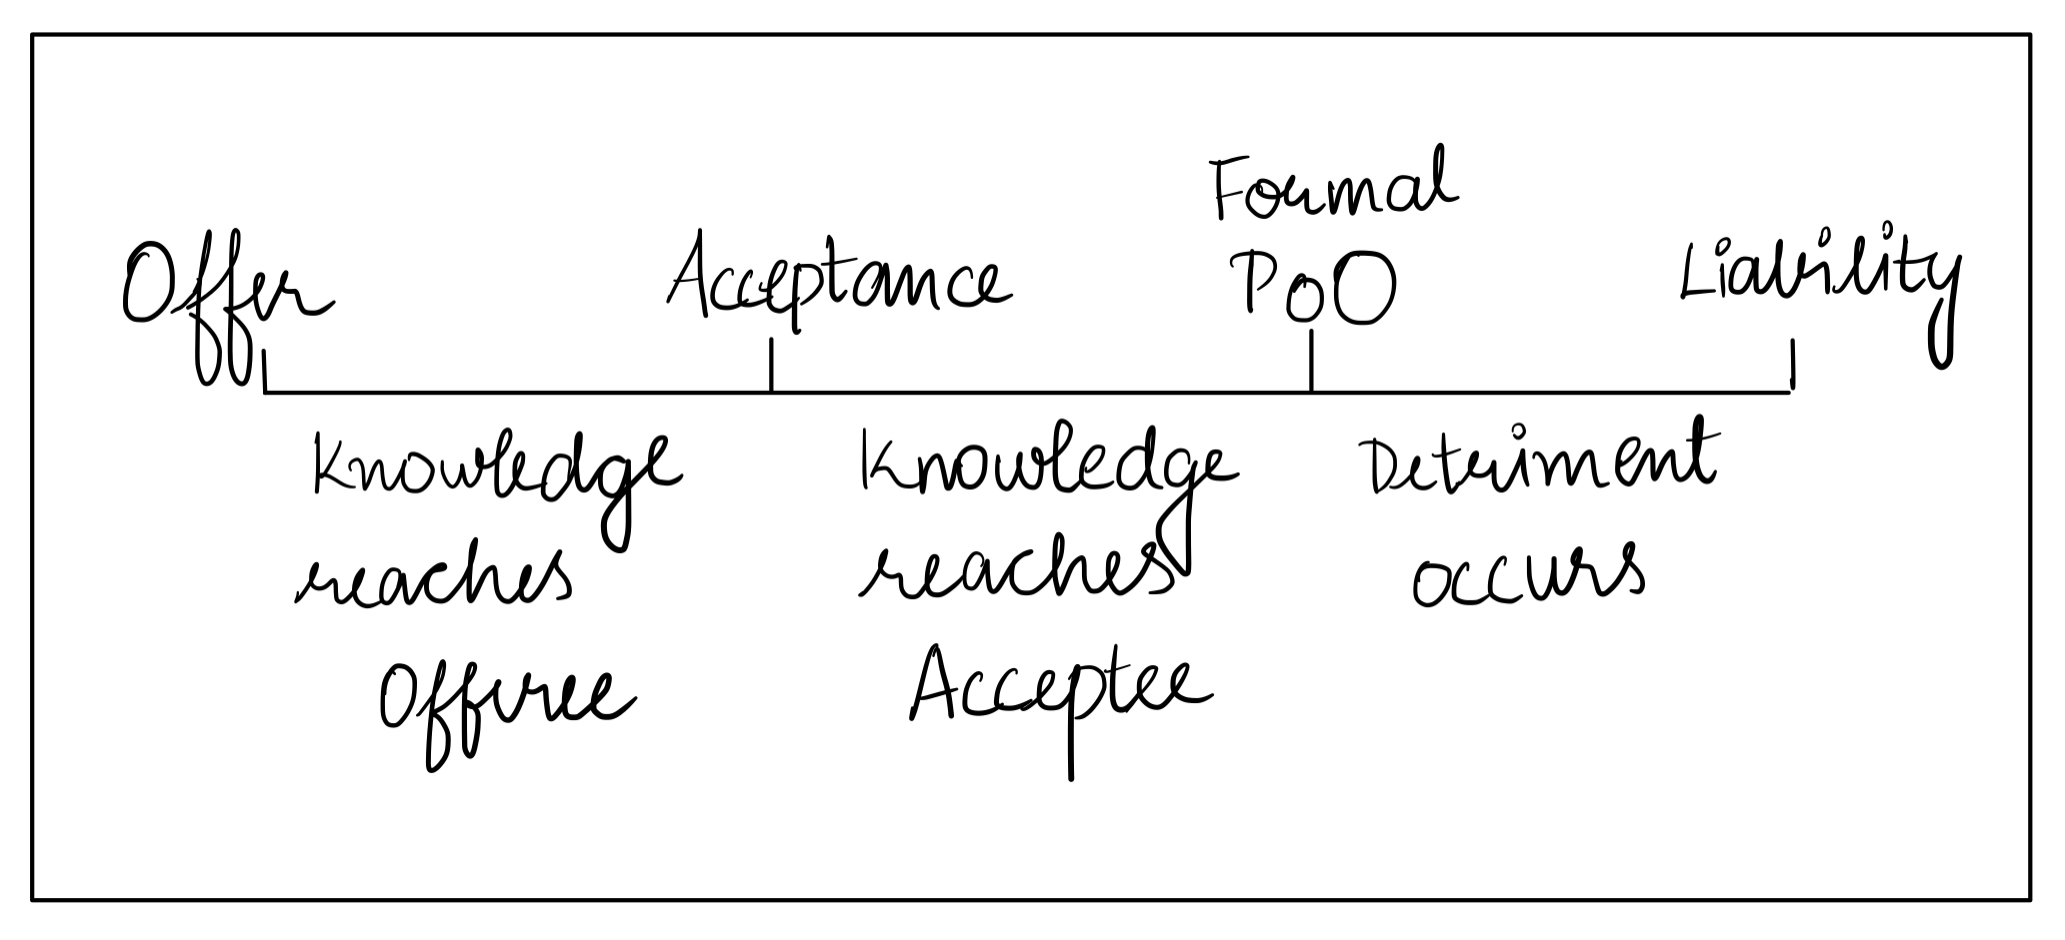 Offer
Acceptance
Formal
PoO
Liability
Knowledge
reaches
Offeree
Knowledge
reaches
Acceptee
Detriment
occurs